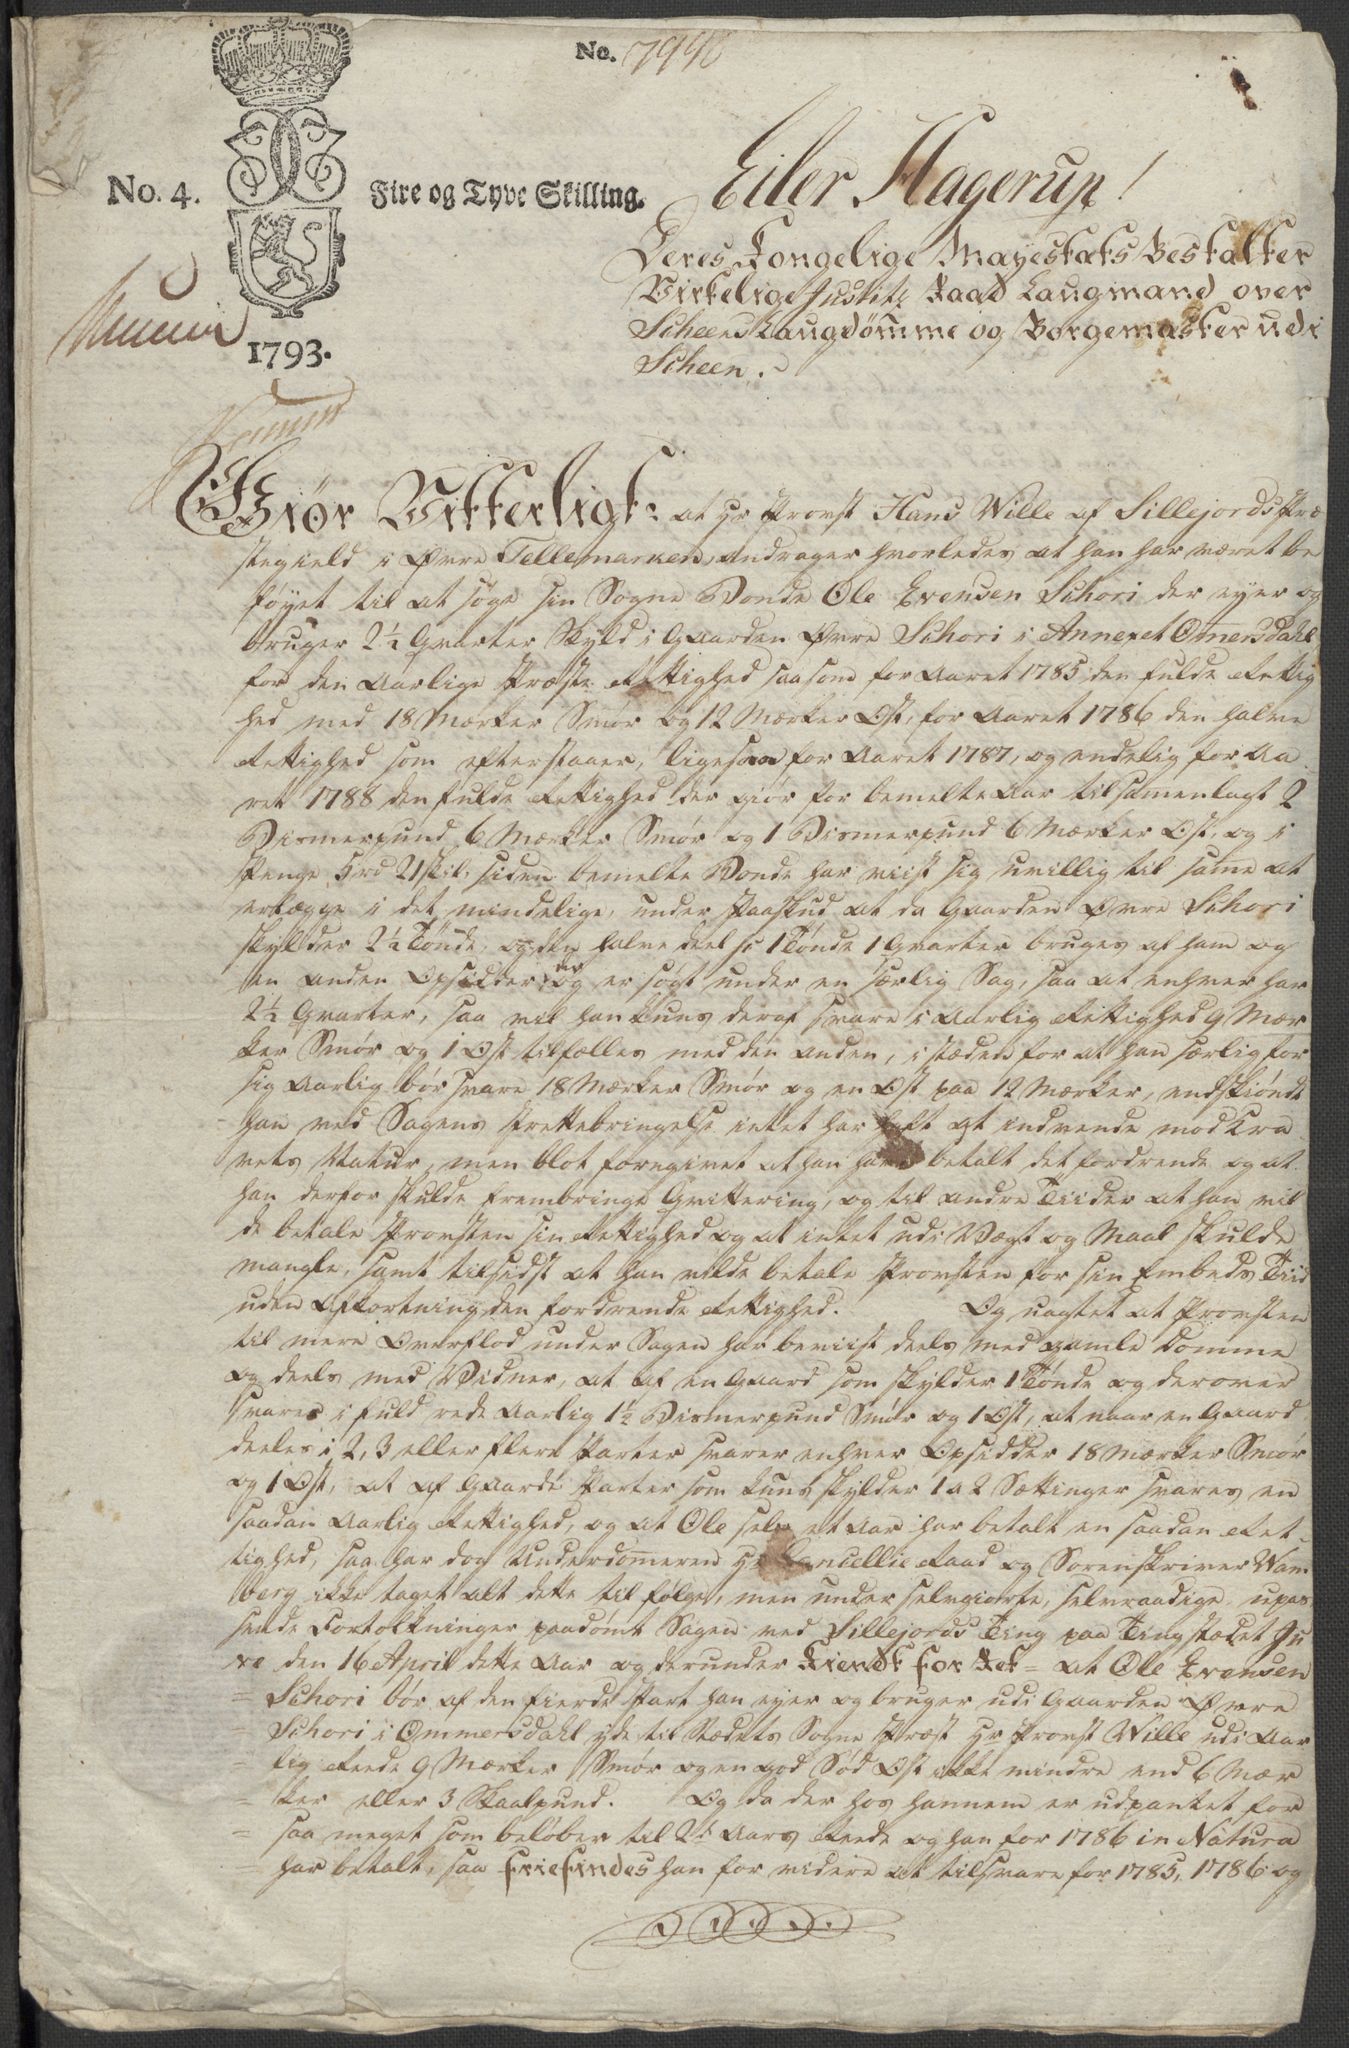 No. 7990
No. 4.
Fire og Tyve Skilling.
1793.
Eiler Hagerup!
Deres Kongelige Mayestæts Bestalter
Virkelige Justitz Raad Laugmand over
Scheens Laugdømme og Borgemæster udi
Scheen.
Giør Vitterligt: at Hr Provst Hans Wille af Sillejords Præ
stegield i Øvre Tellemarken, andrager hvorledes at han har været be
føyet til at søge sin Sogne Bonde Ole Evensen Schori der eyer og
bruger 2½ Qvarter Skyld i Gaarden Øvre Schori i Annexet Omersdahl
for den Aarlige Præste Rettighed saasom for Aaret 1785 den fulde Rettig
hed med 18 Mærker Smør og 12 Mærker Ost, for Aaret 1786 den halve
Rettighed som efterstaaer, ligesaa for Aaret 1787, og endelig for Aa
ret 1788 den fulde Rettighed der giør for bemelte Aar tilsamenlagt 2
Bismerpund 6 Mærker Smør og 1 Bismerpund 6 Mærker Ost, og i
Penge 5 rd 21 skil: siden bemelte Bonde har viist sig uvillig til samme at
erlægge i det mindelige, under Paaskud at da Gaarden Øvre Schori
skylder 2½ Tønde, og den halve deel sc 1 Tønde 1 Qvarter bruges af ham og
en anden Opsidder, der og er søgt under en særlig Sag, saa at enhver har
2½ Qvarter, saa vil han kuns deraf svare i Aarlig Rettighed 9 Mær
ker Smør og 1 Ost tilfælles med den anden, i stæden for at han særlig for
sig Aarlig bør svare 18 Mærker Smør og en Ost paa 12 Mærker, endskiøndt
han ved Sagens Frettebringelse intet har haft at indvende mod Kra
vets Natur, men blot foregivet at han havde betalt det fordrende og at
han derfor skulde frembringe Qvittering, og til andre Tiider at han vil
de betale Provsten sin Rettighed og at intet udi Vægt og Maal skulde
mangle, samt tilsidst at han vilde betale Provsten for sin Embeds Tiid
uden Afkortning den fordrende Rettighed. Og uagtet at Provsten
til mere Overflod under Sagen har beviist deels med gamle Domme
og deels med Vidner, at af en Gaard som skylder 1 Tønde og derover
svares i fuld rede Aarlig 1½ Bismerpund Smør og 1 Ost, at naar en Gaard
deeles i 2, 3 eller flere Parter svarer enhver Opsidder 18 Mærker Smør
og 1 Ost, at af Gaarde Parter som kuns skylder 1 a 2 Sættinger svares en
saadan Aarlig Rettighed, og at Ole selv et Aar har betalt en saadan Ret
tighed, saa har dog Underdomeren Hr Cancellie Raad og Sorenskriver Wam
berg ikke taget alt dette til følge, men under selvgiorte, selvraadige upas
sende Fortolkninger paadømt Sagen ved Sillejords Ting paa Tingstædet Ju
ve den 16 April dette Aar og derunder Kiendt for Ret = at Ole Evensen
= Schori bør af den fierde Part han eyer og bruger udi Gaarden Øvre
= Schori i Ommersdahl yde til Stædets Sogne Præst Hr Provst Wille udi Aar
= lig Reede 9 Mærker Smør og en god Sød Ost ikke mindre end 6 Mær
= ker eller 3 Skaalpund. Og da der hos hannem er udpantet for
= saa meget som beløber til 2de Aars Reede og han for 1786 in Natura
= har betalt, saa friefindes han for videre at tilsvare for 1785, 1786 og